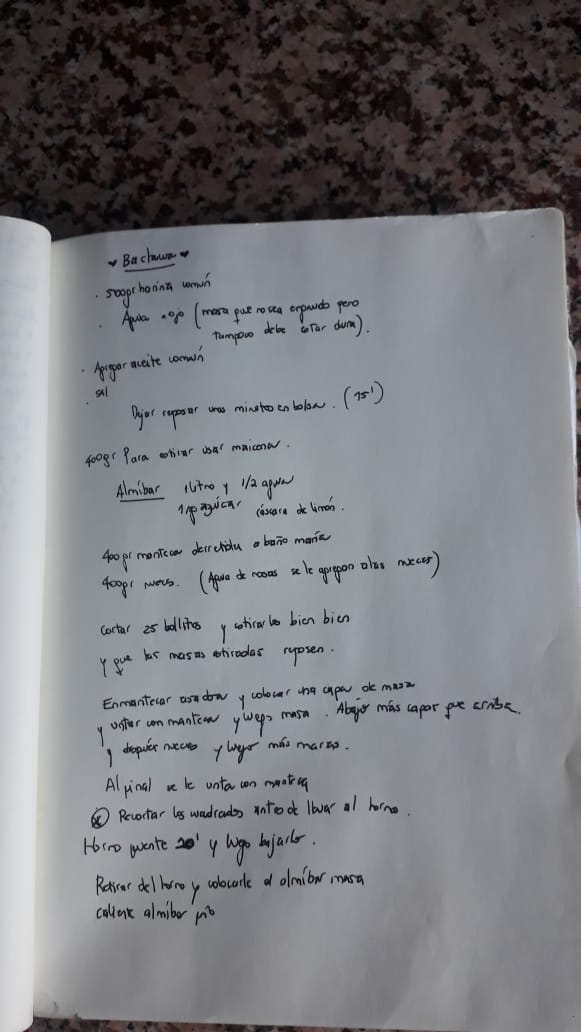 ♥ Baclawa ♥
. 500gr harina común
. Agua a ojo (masa que no sea engrudo pero
tampoco debe estar dura).
. Agregar aceite común
. sal
Dejar reposar unos minutos en bolsa. (15')
400gr Para estirar usar maicena.
Almíbar 1 litro y 1/2 agua
azúcar cáscara de limón.
400gr manteca derretida a baño maría
400gr nueces. (Agua de rosas se le agregan a las nueces)
Cortar 25 bollitos y estirarlos bien bien
y que las masas estiradas reposen.
Enmantecar asadera y colocar una capa de masa
y untar con manteca y luego masa. Abajo más capas que arriba.
y después nueces y luego más masas.
Al final se le unta con manteca
* Recortar los cuadrados antes de llevar al horno.
Horno fuerte 20' y luego bajarlo.
Retirar del horno y colocarle el almíbar masa
caliente almíbar frío